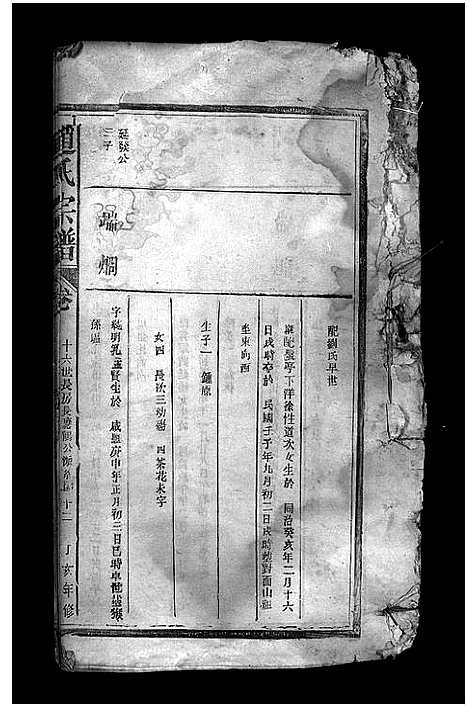 配劉氏早世
繼配盤亭下洋徐性道次女生於 同治癸亥年二月十六
日戌時卒於 民國壬子年九月初二日戌時葬對面山
坐東向西
生子一 鍾原
女四 長次三幼 四茶花未字
延發公
三子
端烱
字 明孔 生於 咸豐庚申年正月初三日巳時卒
氏宗譜
卷
十六世長房長 公 十二 丁亥年修